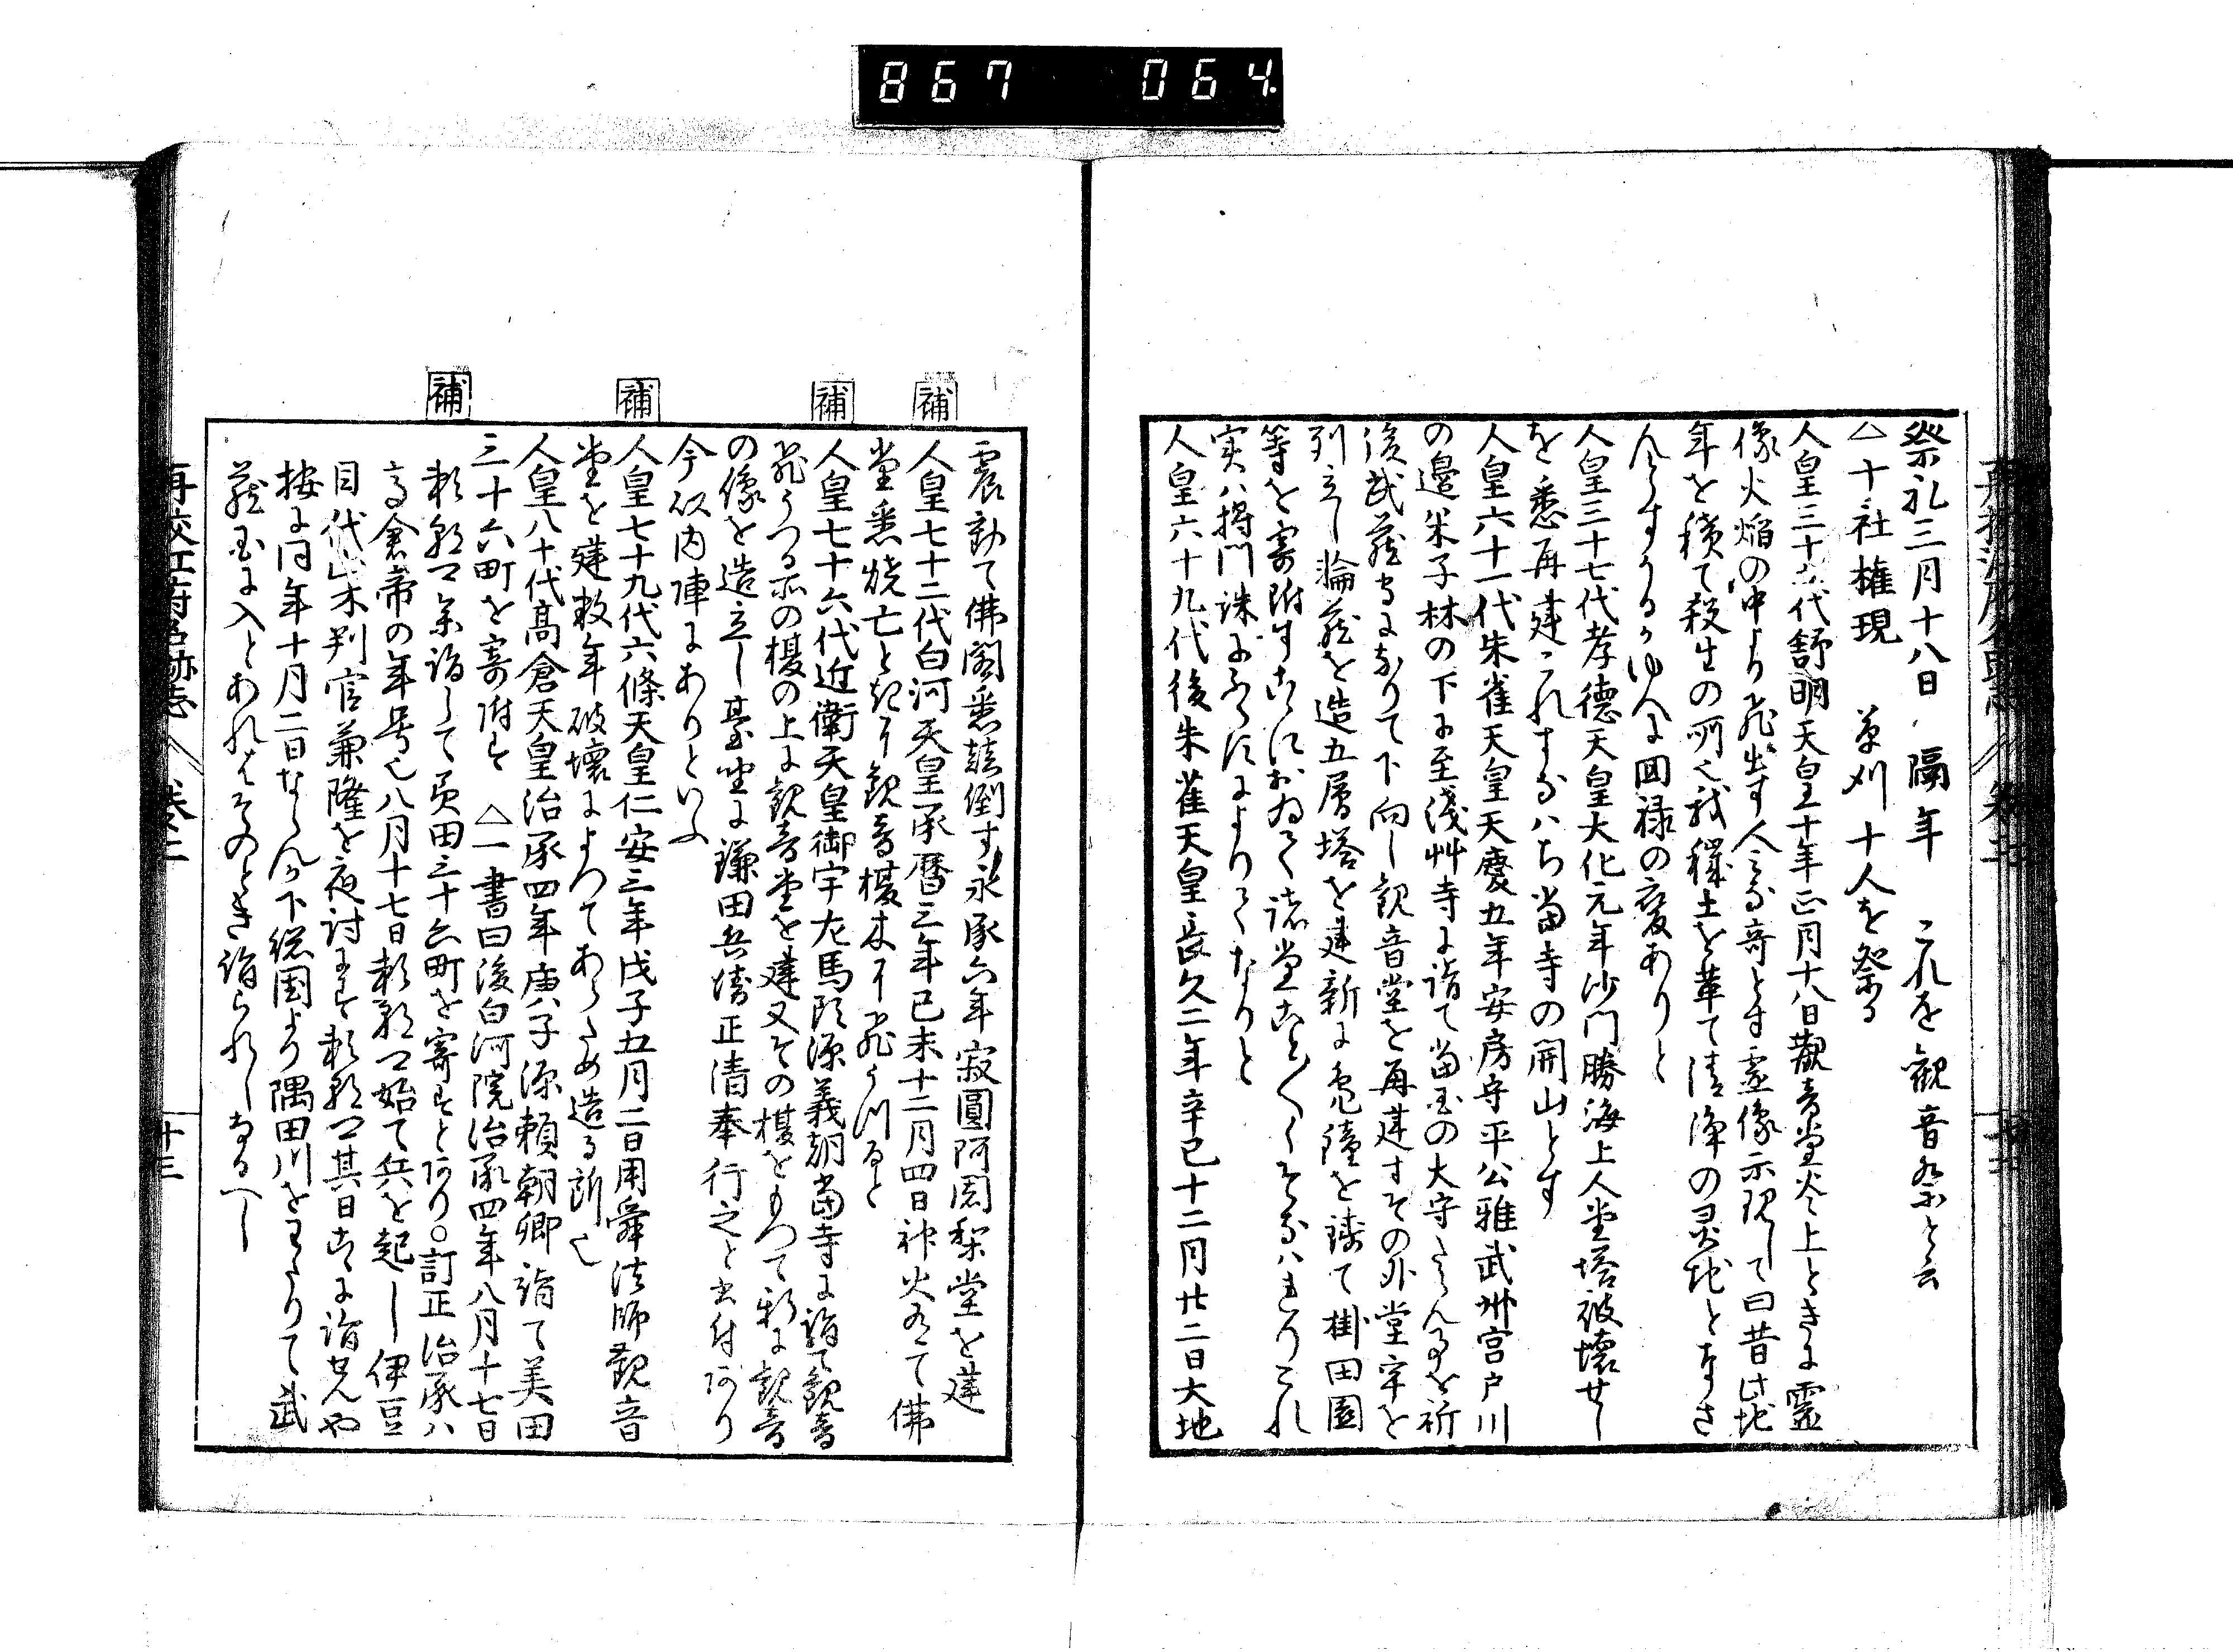 867 064
祭礼三月十八日 隔年 これを観音祭と云
△十社権現 草刈十人を祭る
人皇三十五代舒明天皇十年正月十八日観音堂炎上ときに霊
像火焔の中より飛出す人みな奇とす霊像示現して曰昔此地
年を積て殺生の所也我穢土を革て清浄の灵地となさ
んとするかゆへに回禄の変ありと
人皇三十七代孝徳天皇大化元年沙門勝海上人堂塔破壊せし
を悉再建これすなハち当寺の開山とす
人皇六十一代朱雀天皇天慶五年安房守平公雅武州宮戸川
の邊米子林の下に至浅艸寺に詣て当国の大守たらん事を祈
後武蔵守になりて下向し観音堂を再建すその外堂宇を
列立し輪蔵を造五層塔を建新に鳬鐘を鋳て掛田園
等を寄附すこゝにおゐて諸堂こと〳〵くそなハれりこれ
実ハ将門誅にふくすによりてなりと
人皇六十九代後朱雀天皇長久二年辛巳十二月廿二日大地
震動て佛閣悉顛倒す永承六年寂圓阿闍梨堂を建
補
人皇七十二代白河天皇承暦三年己未十二月四日神火有て佛
堂悉焼亡とキに観音榎木に飛うつると
補
人皇七十六代近衛天皇御宇左馬頭源義朝当寺に詣て観音
飛うつる所の榎の上に観音堂を建又その榎をもつて新に観音
の像を造立し臺坐に鎌田兵衛正清奉行之と書付あり
今以内陣にありといふ
補
人皇七十九代六條天皇仁安三年戊子五月二日用舜法師観音
堂を建数年破壊によつてあらため造る所也
人皇八十代高倉天皇治承四年庚子源頼朝卿詣て美田
三十六町を寄附す △一書曰後白河院治承四年八月十七日
補
頼朝公参詣して美田三十六町を寄すとあり○訂正治承ハ
高倉帝の年号也八月十七日頼朝公始て兵を起し伊豆
目代山木判官兼隆を夜討にす頼朝公其日こゝに詣せんや
按に同年十月二日ならんか下総国より隅田川をわたりて武
蔵国に入とあれはそのとき詣られしなるへし
再校江府名跡志 巻二 十三